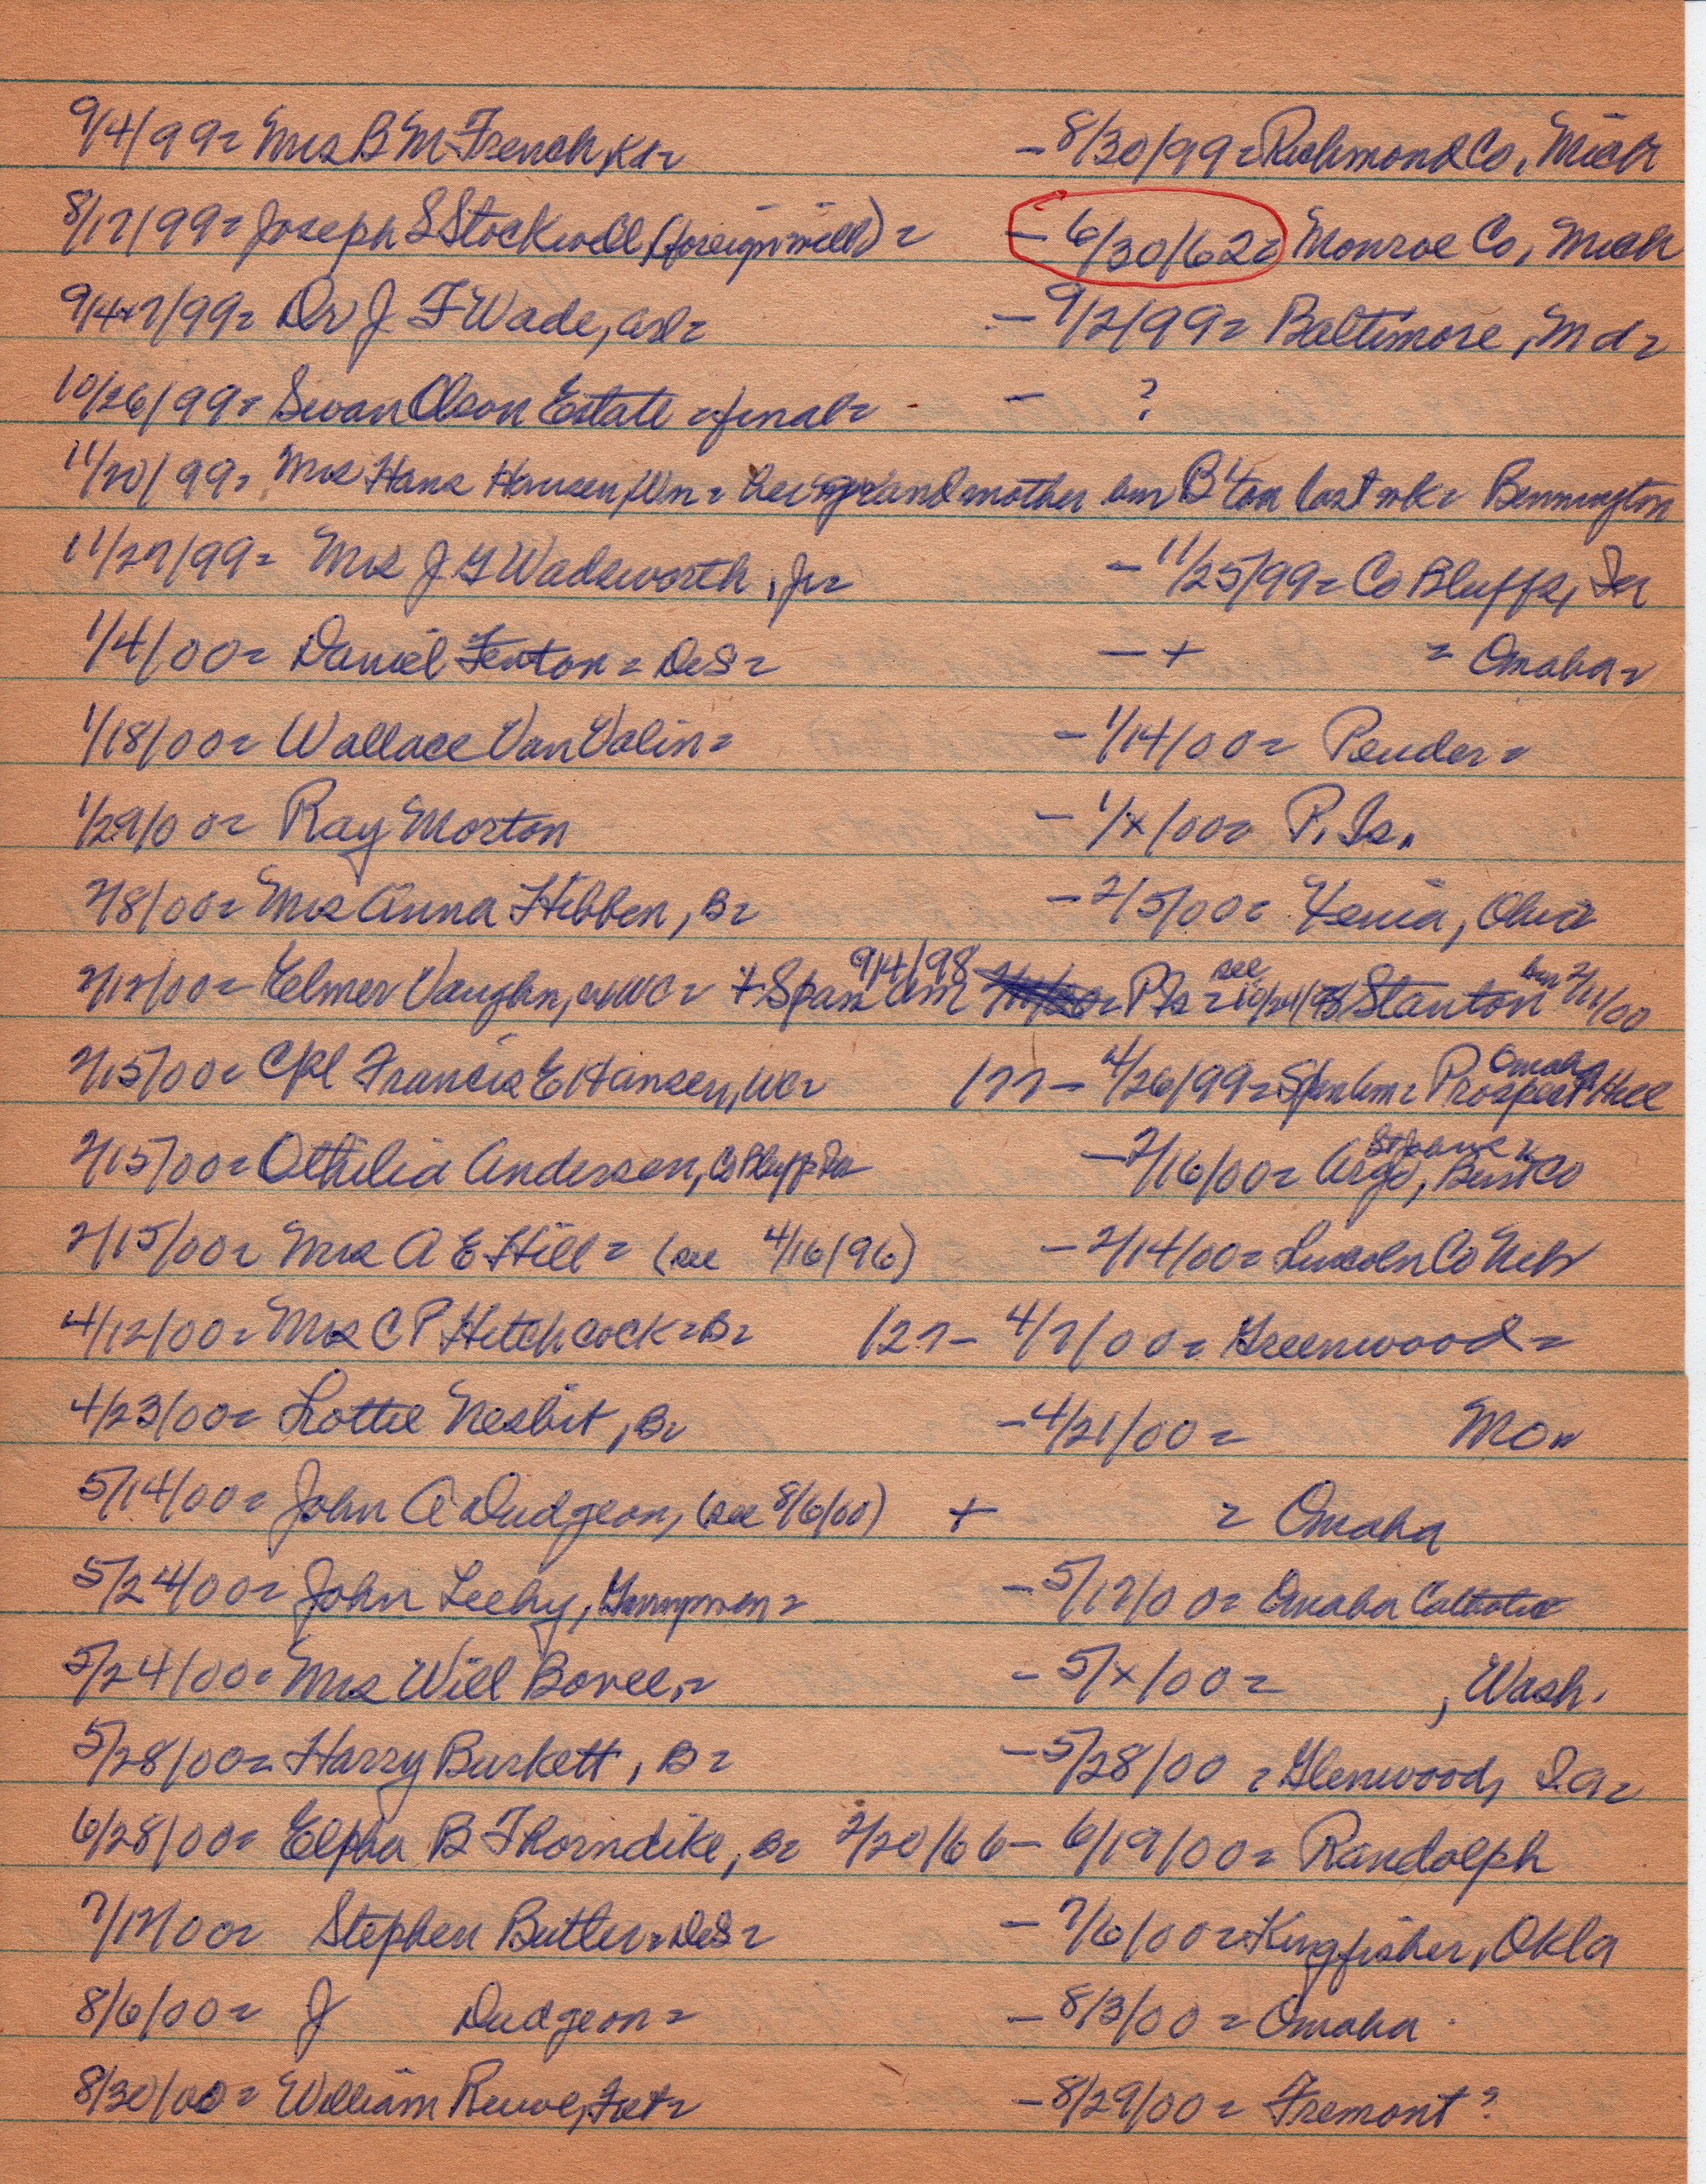 9/4/99= Mrs B M French, Kn= - 8/30/99= Richmond Co, Mich
8/17/99= Joseph S Stockwell (foreign will) = - 6/30/62= Monroe Co, Mich
9/4+7/99= Dr J F Wade, = - 9/2/99= Baltimore, Md=
10/26/99= Swan Olson Estate = final= - ?
11/20/99= Mrs Hans Hansen, Wn= her grandmother bur B'ton last wk= Bennington
11/27/99= Mrs J G Wadsworth, Jr= - 11/25/99= Co Bluffs, Ia
1/4/00= Daniel Fenton = DeS= - + = Omaha=
1/18/00= Wallace Van Valin= - 1/14/00= Pender=
1/29/00= Ray Morton - 1/x/00= P. Is.
2/8/00= Mrs Anna Hibben, B= - 2/5/00= Xenia, Ohio
2/12/00= Elmer Vaughn, = + Span Am 9/4/98 P Is = see 10/21/98 Stanton bur 2/11/00
2/15/00= Cpl Francis E Hansen, WC= 1??- 4/26/99= Span Am= Omaha Prospect Hill
2/15/00= Othilia Anderson, Co Bluffs Ia - 2/16/00= Argo, Burt Co
2/15/00= Mrs A E Hill= (see 4/16/96) - 2/14/00= Lincoln Co Neb
4/12/00= Mrs C P Hitchcock= B= 12?- 4/7/00= Greenwood=
4/23/00= Lottie Nesbit, B= - 4/21/00= Mo=
5/14/00= John A Dudgeon, (see 8/6/00) + = Omaha
5/24/00= John Leehy, = - 5/17/00= Omaha Catholic
5/24/00= Mrs Will Bovee,= - 5/x/00= , Wash.
5/28/00= Harry Burkett, B= - 5/28/00 = Glenwood, Ia=
6/28/00= Elpha B Thorndike, B= 2/20/66- 6/19/00= Randolph
7/12/00= Stephen Butler= DeS= - 7/6/00= Kingfisher, Okla
8/6/00= J Dudgeon= - 8/3/00= Omaha
8/30/00= William , = - 8/29/00= Fremont?